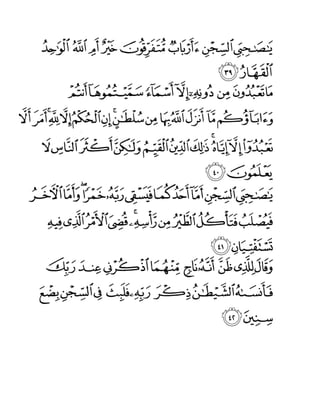 يَـٰصَىٰحِبَىِ ٱلسِّجْنِ ءَأَرْبَابٌ مُّتَفَرِّقُونَ خَيْرٌ أَمِ ٱللَّهُ ٱلْوَٰحِدُ
ٱلْقَهَّارُ ﴿٣٩﴾
مَا تَعْبُدُونَ مِن دُونِهِۦٓ إِلَّآ أَسْمَآءً سَمَّيْتُمُوهَآ أَنتُمْ
وَءَابَآؤُكُم مَّآ أَنزَلَ ٱللَّهُ بِهَا مِن سُلْطَـٰنٍ ۚ إِنِ ٱلْحُكْمُ إِلَّا لِلَّهِ ۚ أَمَرَ أَلَّا
تَعْبُدُوٓا۟ إِلَّآ إِيَّاهُ ۚ ذَٰلِكَ ٱلدِّينُ ٱلْقَيِّمُ وَلَـٰكِنَّ أَكْثَرَ ٱلنَّاسِ لَا
يَعْلَمُونَ ﴿٤٠﴾
يَـٰصَـٰحِبَىِ ٱلسِّجْنِ أَمَّآ أَحَدُكُمَا فَيَسْقِى رَبَّهُۥ خَمْرًا ۖ وَأَمَّا ٱلْـَٔاخَرُ
فَيُصْلَبُ فَتَأْكُلُ ٱلطَّيْرُ مِن رَّأْسِهِۦ ۚ قُضِىَ ٱلْأَمْرُ ٱلَّذِى فِيهِ
تَسْتَفْتِيَانِ ﴿٤١﴾
وَقَالَ لِلَّذِى ظَنَّ أَنَّهُۥ نَاجٍ مِّنْهُمَا ٱذْكُرْنِى عِندَ رَبِّكَ
فَأَنسَىٰهُ ٱلشَّيْطَـٰنُ ذِكْرَ رَبِّهِۦ فَلَبِثَ فِى ٱلسِّجْنِ بِضْعَ
سِنِينَ ﴿٤٢﴾